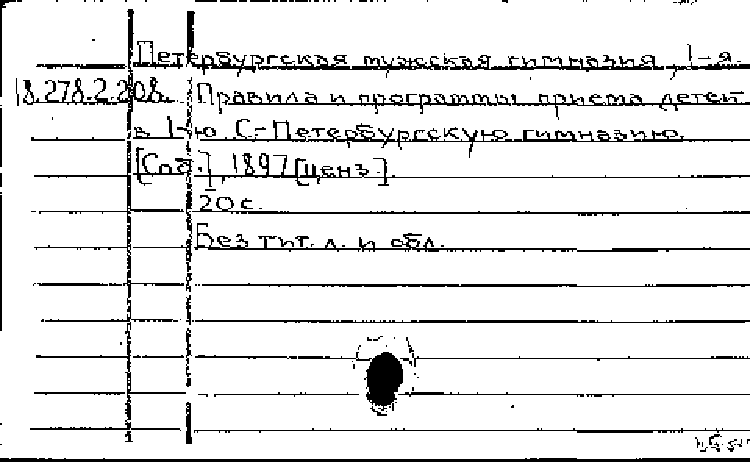 Петербургская мужская гимназия, 1-я.
18.278.2.208. Правила и программы приема детей
в 1-ю С.-Петербургскую гимназию.
[Спб.], 1897 [ценз.].
20 с.
Без тит. л. и обл.